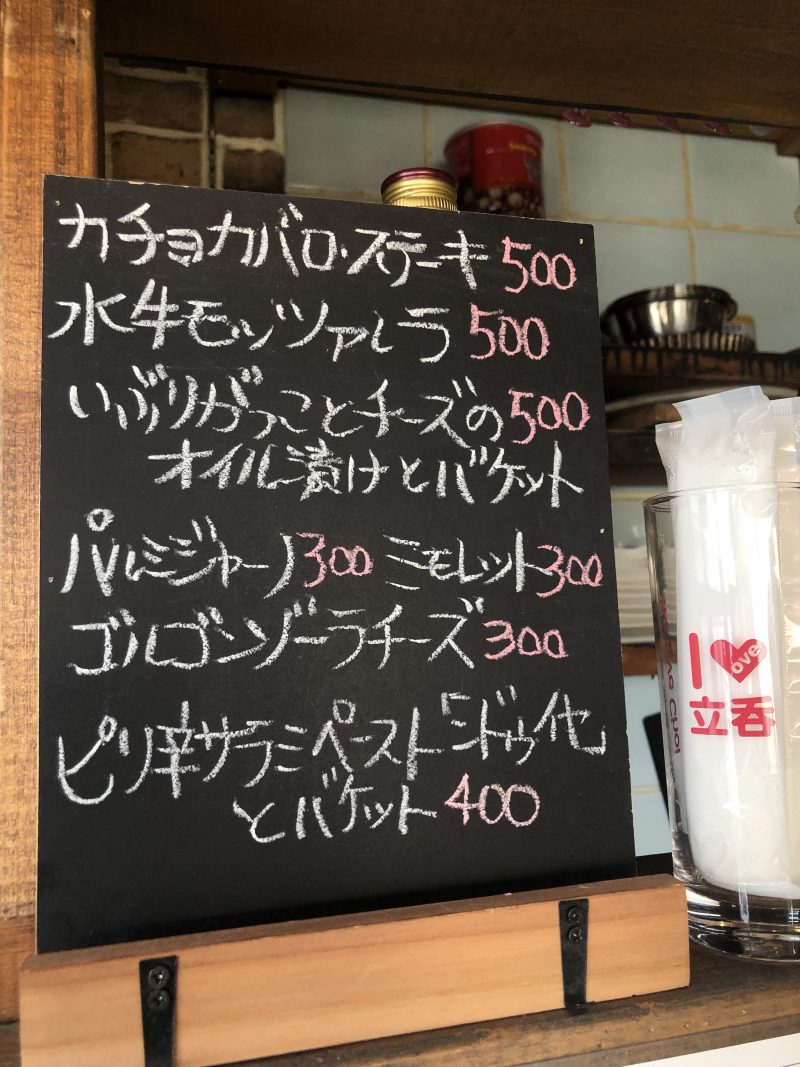 カチョカバロ・ステーキ 500
水牛モッツァレラ 500
いぶりがっことチーズの 500
オイル漬けとバケット
パルミジャーノ 300 ミモレット 300
ゴルゴンゾーラチーズ 300
ピリ辛サラミペースト「ンドゥイヤ
とバケット 400
I Love
立呑